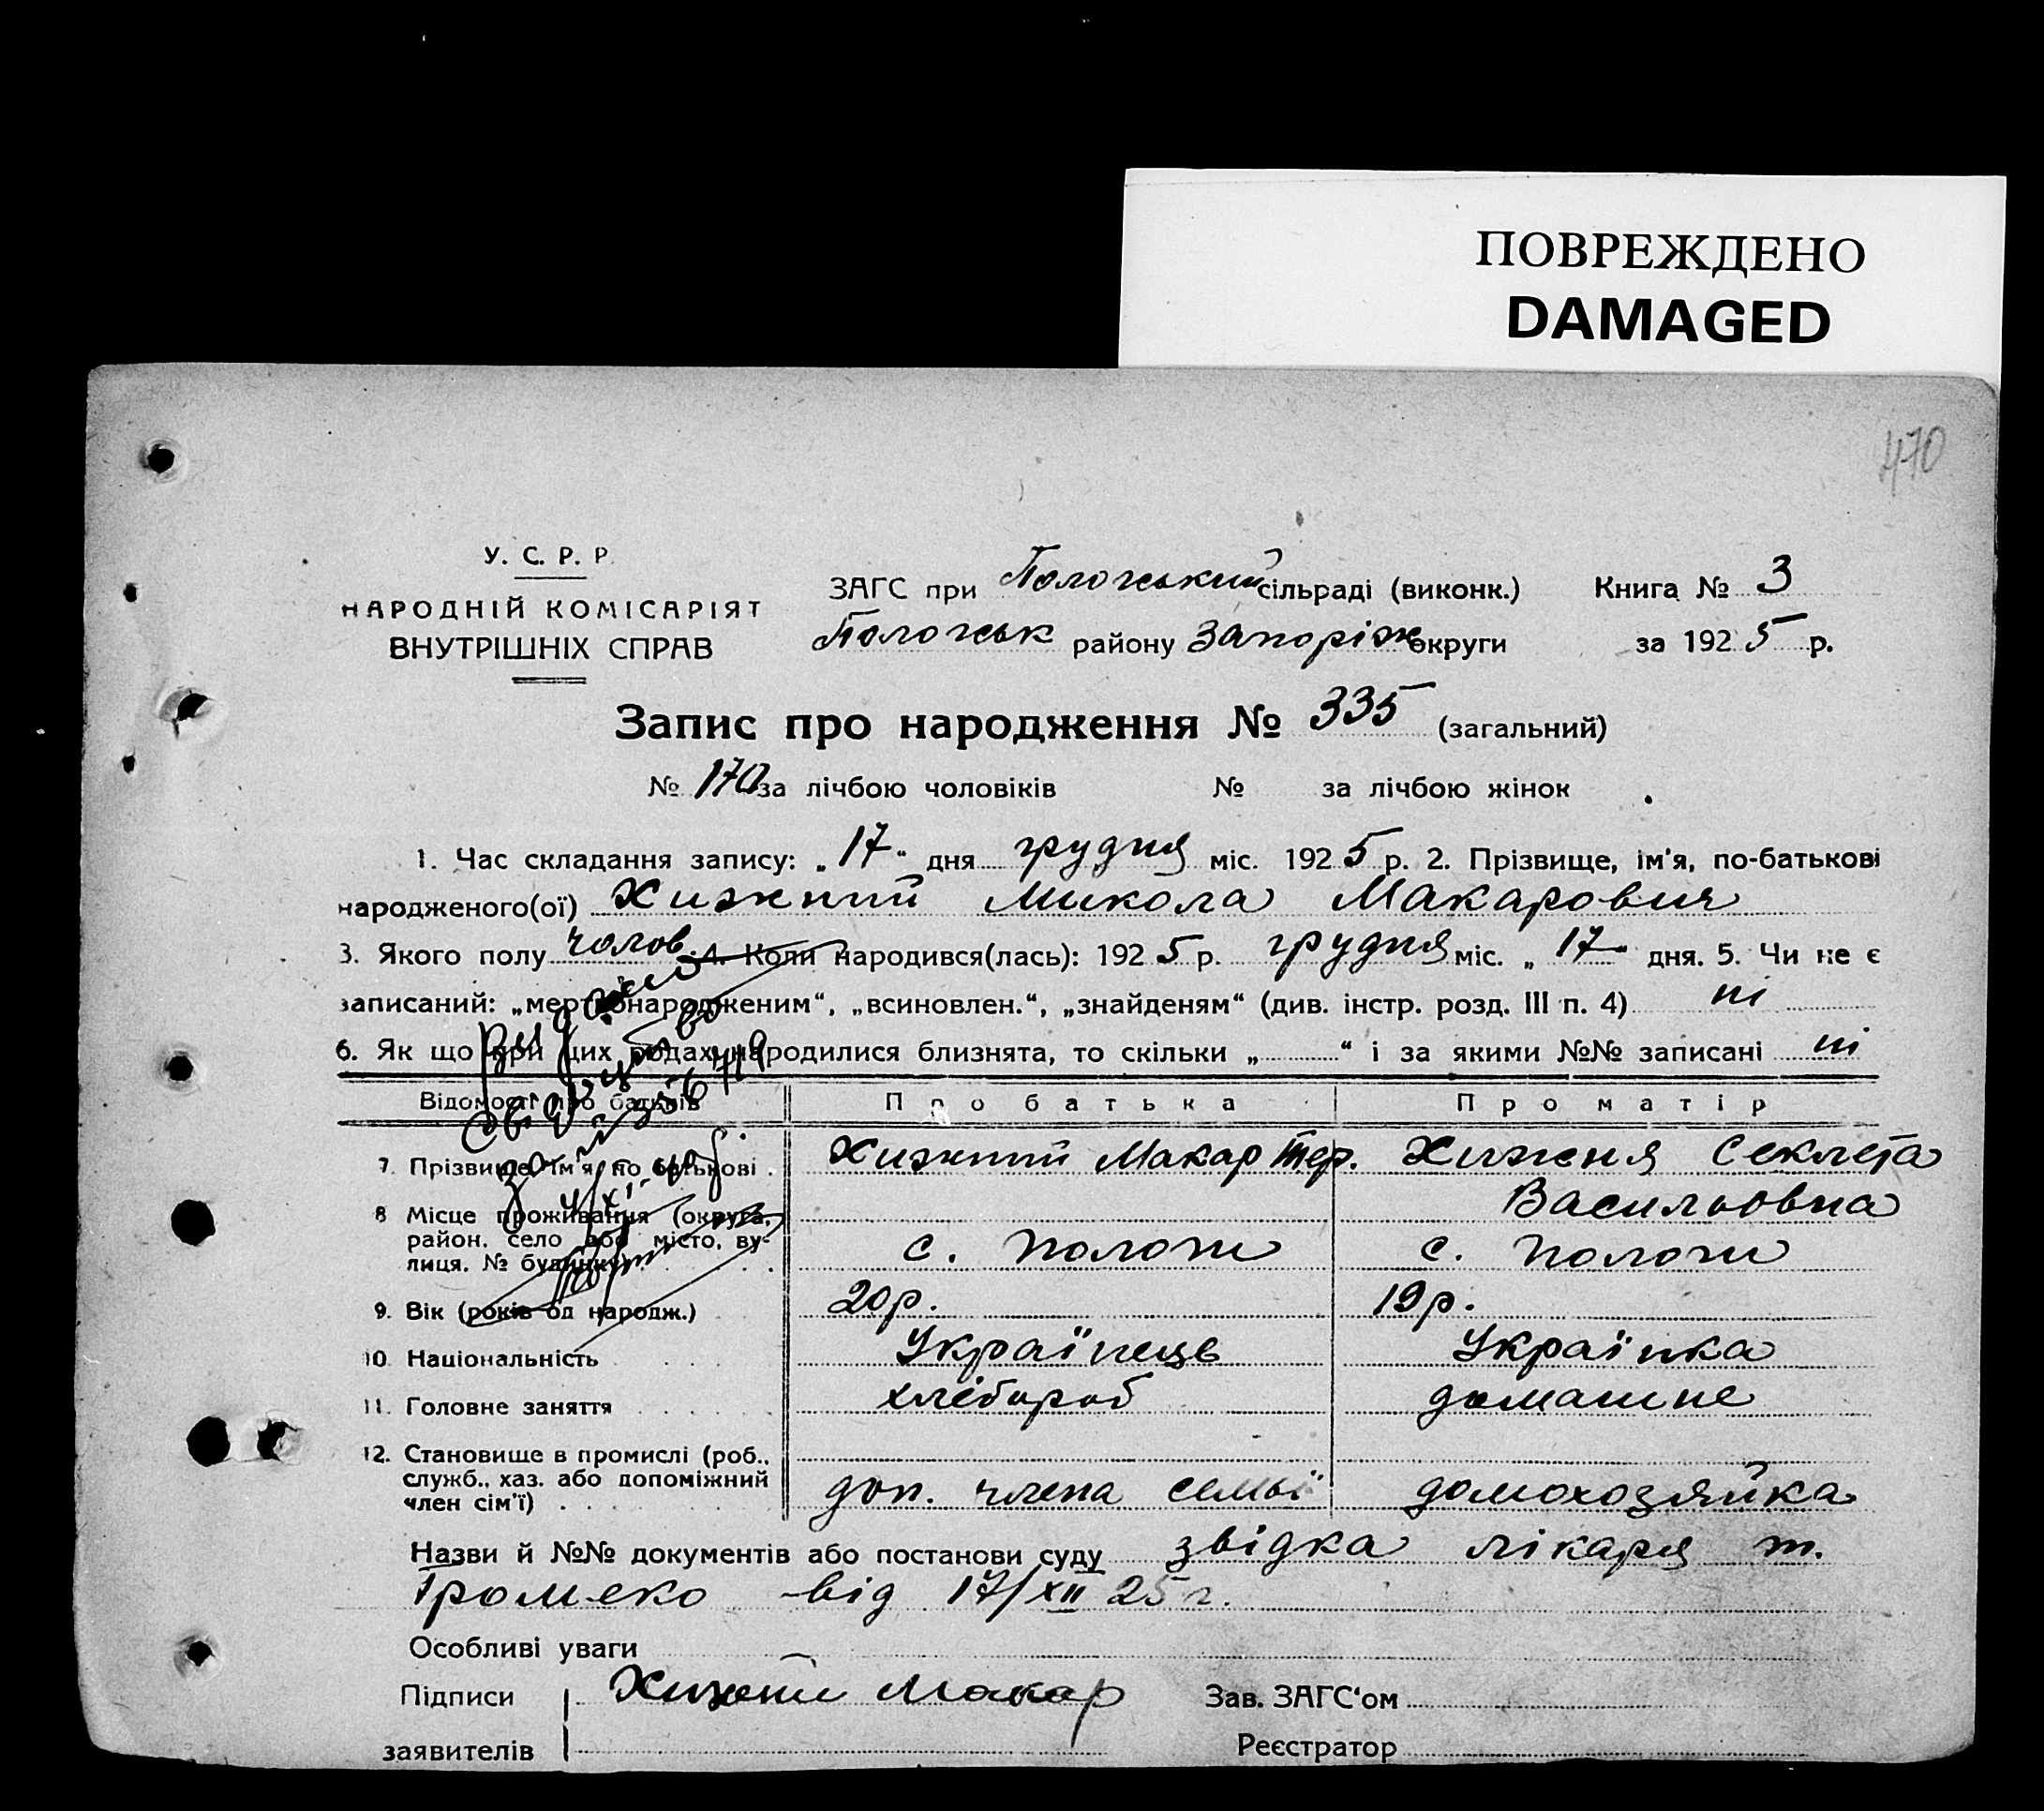 ПОВРЕЖДЕНО
DAMAGED
470
У. С. Р. Р.
НАРОДНІЙ КОМІСАРІЯТ
ВНУТРІШНІХ СПРАВ
ЗАГС при Пологський сільраді (виконк.) Книга № 3
Пологськ району Запоріж округи за 1925 р.
Запис про народження № 335 (загальний)
№ 170 за лічбою чоловіків № за лічбою жінок
1. Час складання запису: „17“ дня грудня міс. 1925 р. 2. Прізвище, ім'я, по-батькові
народженого(ої) Хижний Микола Макарович
3. Якого полу чолов. 4. Коли народився(лась): 1925 р. грудня міс. „17“ дня. 5. Чи не є
записаний: „мертвонародженим“, „всиновлен.“, „знайденям“ (див. інстр. розд. III п. 4) ні
6. Як що при цих родах народилися близнята, то скільки „ “ і за якими №№ записані ні
Відомості про батьків Про батька Про матір
7. Прізвище ім'я по батькові Хижний Макар Тер. Хижня Секлета
Васильовна
8 Місце проживання (округа,
район, село або місто, ву-
лиця, № будинку) с. Пологи с. Пологи
9. Вік (років од народж.) 20р. 19р.
10 Національність Українець Українка
11. Головне заняття хлібороб домашнє
12. Становище в промислі (роб.,
служб., хаз. або допоміжний
член сім'ї) доп. члена семьї домохозяйка
Назви й №№ документів або постанови суду звідка лікаря т.
Громеко від 17/XII 25 г.
Особливі уваги
Підписи Хижний Макар Зав. ЗАГС'ом
заявителів Реєстратор